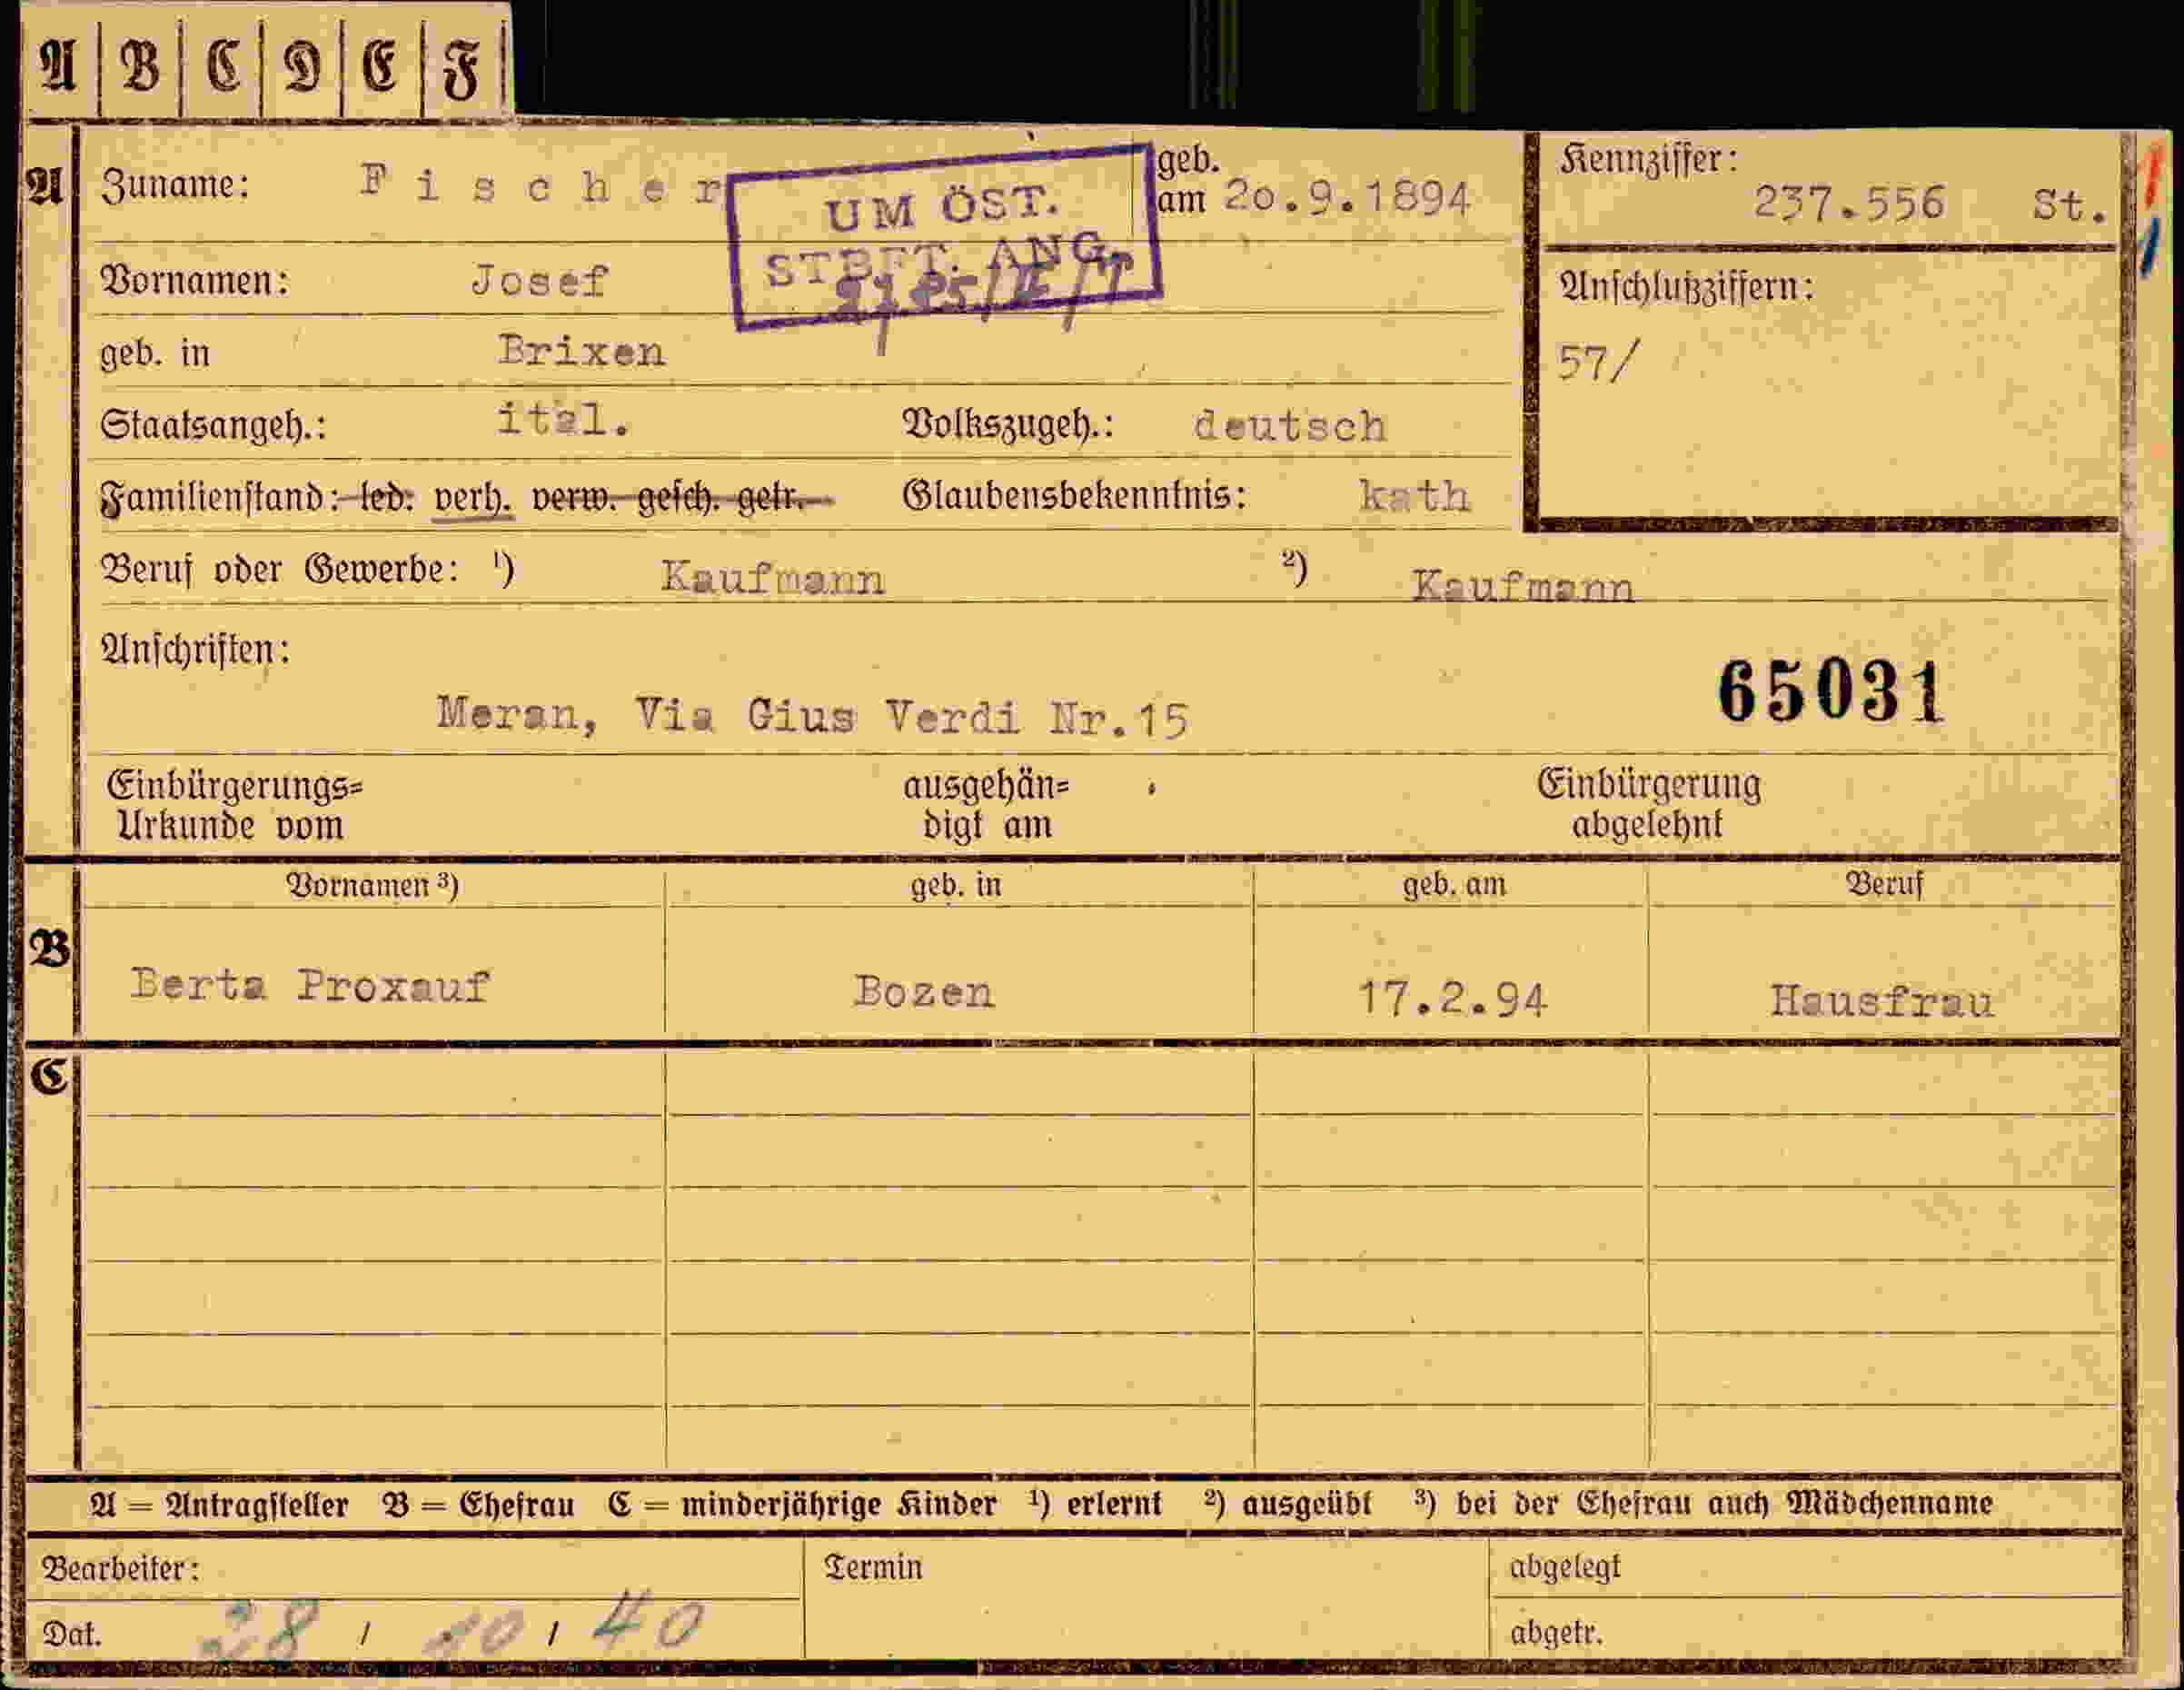 A B C D E F
A Zuname: Fischer geb. am 20.9.1894 Kennziffer: 237.556 St.
UM ÖST.
STBFT. ANG.
Vornamen: Josef
Anschlußziffern:
57/
geb. in Brixen
Staatsangeh.: ital. Volkszugeh.: deutsch
Familienstand: led. verh. verw. gesch. getr. Glaubensbekenntnis: kath
Beruf oder Gewerbe: ¹) Kaufmann ²) Kaufmann
Anschriften:
65031
Meran, Via Gius Verdi Nr.15
Einbürgerungs= ausgehän= Einbürgerung
Urkunde vom digt am abgelehnt
Vornamen ³) geb. in geb. am Beruf
B
Berta Proxauf Bozen 17.2.94 Hausfrau
C
A = Antragsteller B = Ehefrau C = minderjährige Kinder ¹) erlernt ²) ausgeübt ³) bei der Ehefrau auch Mädchenname
Bearbeiter: Termin abgelegt
Dat. 28 / 10 / 40 abgetr.